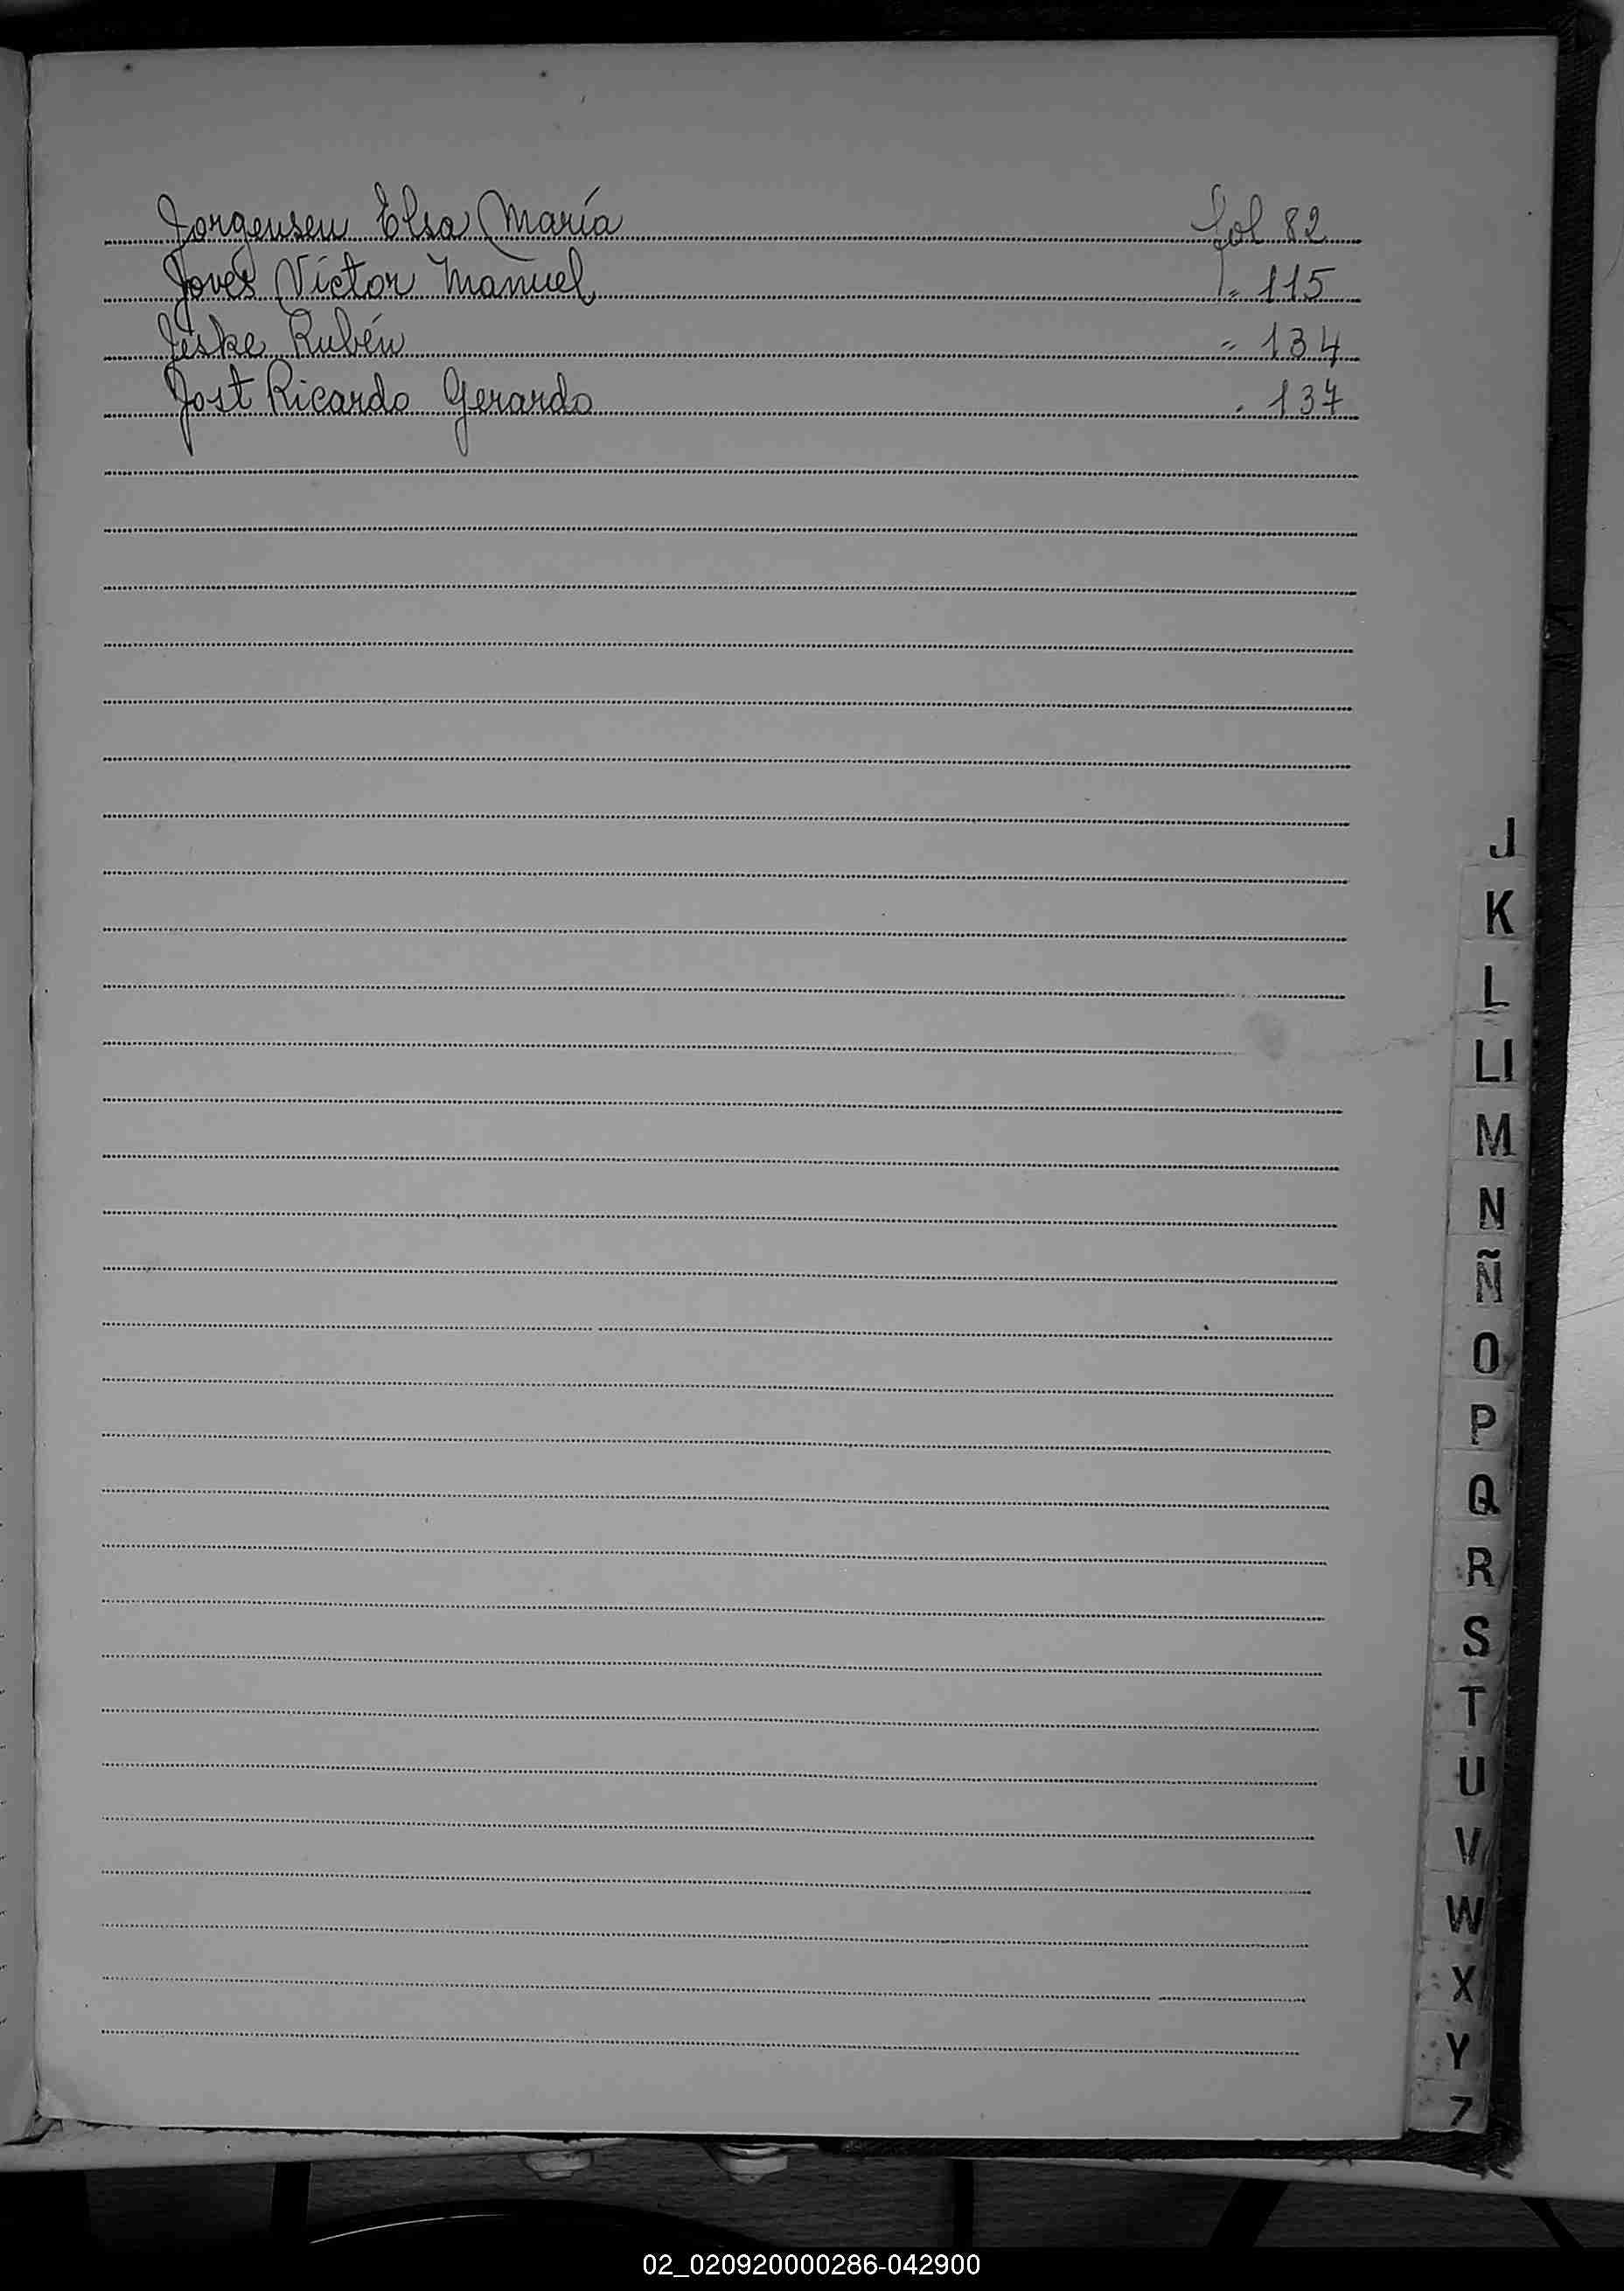 Jorgensen Elsa María fol 82
Joves Víctor Manuel " 115
Jeske Rubén " 134
Jost Ricardo Gerardo " 137
J
K
L
Ll
M
N
Ñ
O
P
Q
R
S
T
U
V
W
X
Y
Z
02_020920000286-042900